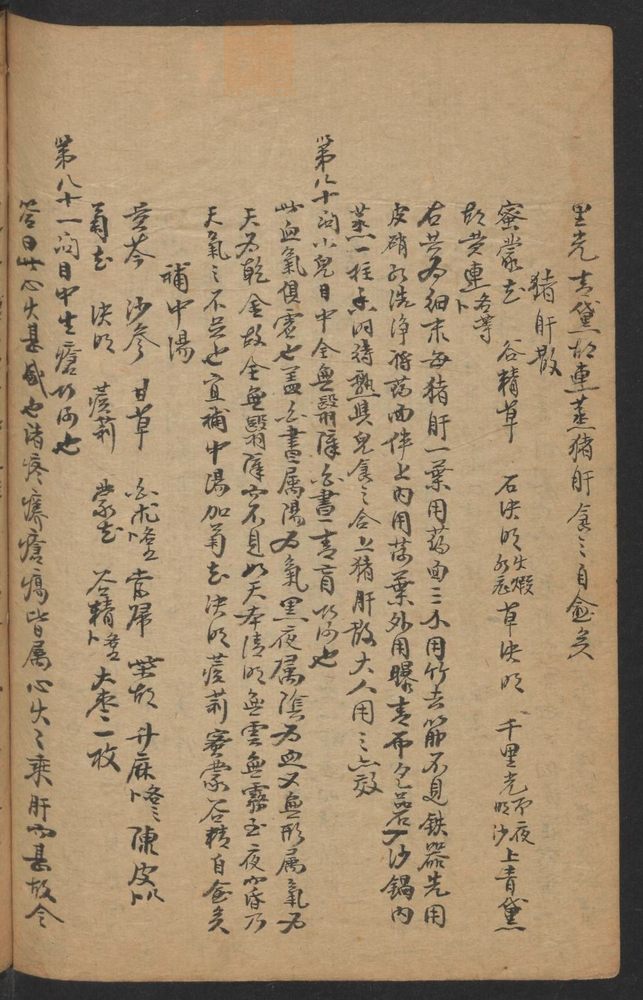 里光青黛胡連蒸猪肝食之自愈矣
猪肝散
蜜蒙花 谷精草 石决明火煅水飛 草决明 千里光即夜明沙 上青黛
胡黄連各等卜
右共為細末每猪肝一葉用药面三小用竹去筋不見鉄器先用
皮硝水洗浄將药面伴上内用荷葉外用青布包若下沙鍋内
蒸一柱香时待熟與兒食之合上猪肝散大人用之亦效
第八十問小兒目中全無翳障白晝青盲巧何也
此血氣俱虚也盖白晝属陽為氣黑夜属陰為血又無形属氣為
天為乾金故全無翳障而不見如天本清明無雲無霧至夜而昏乃
天氣之不足也宜補中湯加菊花决明蒺莉蜜蒙谷精自愈矣
補中湯
黄芩 沙參 甘草 白朮 當歸 柴胡 升麻 陳皮
菊花 决明 蒺莉 蒙花 谷精 大枣二枚
第八十一問目中生瘡巧何也
答曰此心火甚盛也諸疼痒瘡瘍皆属心火之乘肝而甚故令